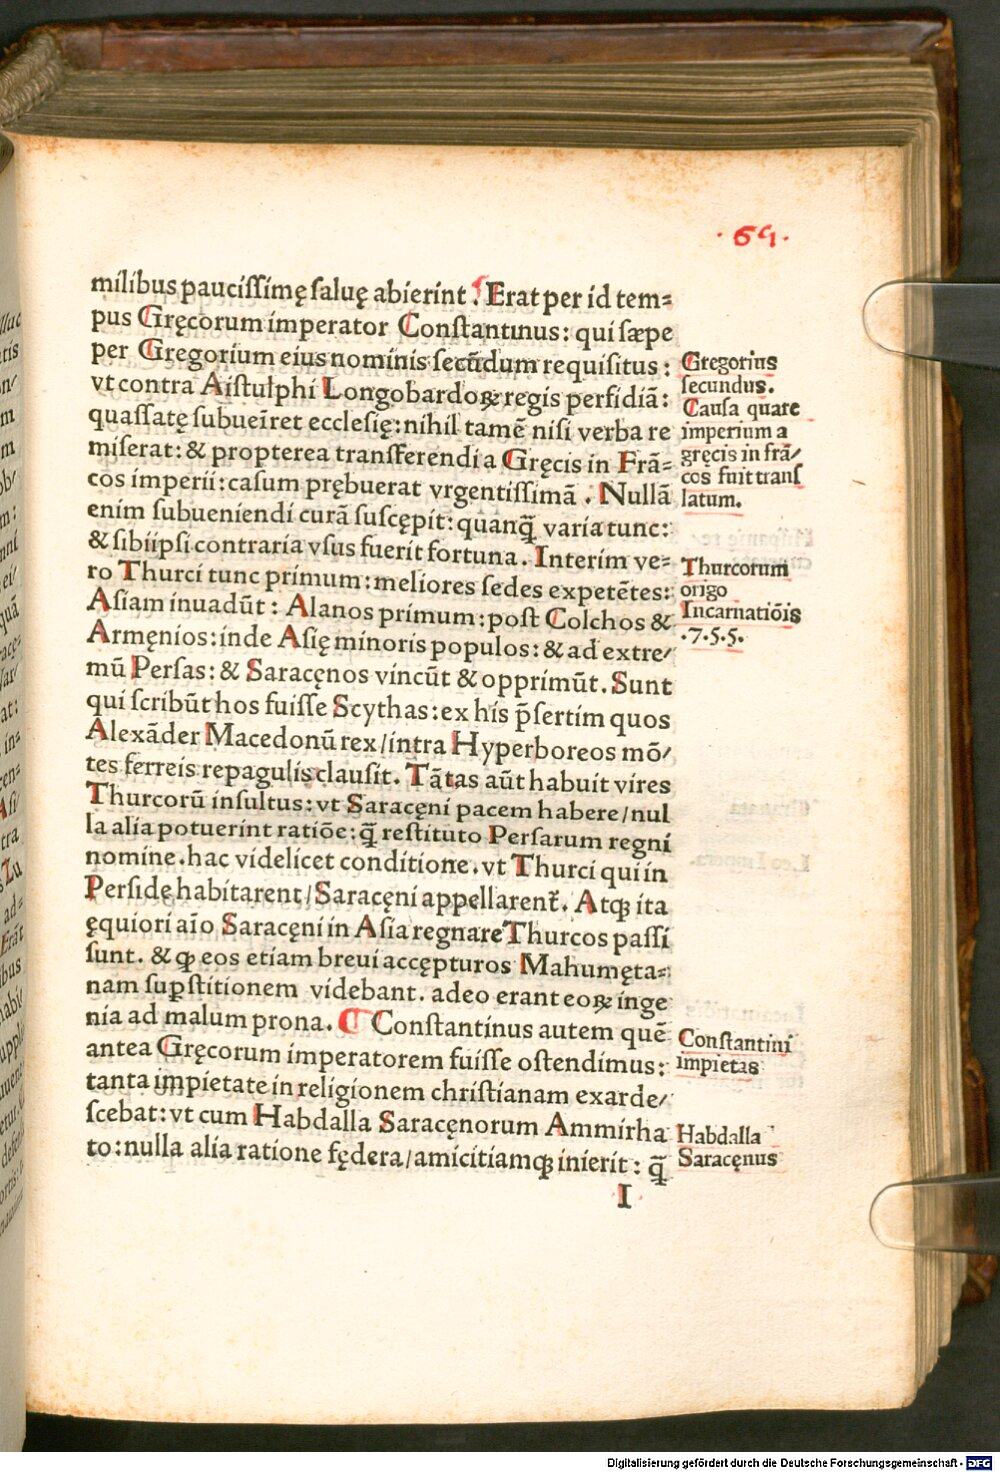 ·65·
milibus pauciſſimę ſaluę abierint. Erat per id tem⸗
pus Gręcorum imperator Conſtantinus: qui ſæpe
per Gregorium eius nominis ſecūdum requiſitus:
vt contra Aiſtulphi Longobardoꝝ regis perfidiā:
quaſſatę ſubueīret eccleſię: nihil tamē niſi verba re
miſerat: & propterea transferendi a Gręcis in Frā⸗
cos imperii: caſum prębuerat vrgentiſſimā. Nullā
enim ſubueniendi curā ſuſcępit: quanq̄ varia tunc:
& ſibiipſi contraria vſus fuerit fortuna. Interim ve⸗
ro Thurci tunc primum: meliores ſedes expetētes:
Aſiam inuadūt: Alanos primum: poſt Colchos &
Armęnios: inde Aſię minoris populos: & ad extre/
mū Perſas: & Saracęnos vincūt & opprimūt. Sunt
qui ſcribūt hos fuiſſe Scythas: ex his p̄ſertim quos
Alexāder Macedonū rex/intra Hyperboreos mō/
tes ferreis repagulis clauſit. Tātas aūt habuit vires
Thurcorū inſultus: vt Saracęni pacem habere/nul
la alia potuerint ratiōe: q̄ reſtituto Perſarum regni
nomine. hac videlicet conditione. vt Thurci qui in
Perſidę habitarent/Saracęni appellarent̄. Atqꝫ ita
ęquiori aīo Saracęni in Aſia regnare Thurcos paſſi
ſunt. & qꝫ eos etiam breui accępturos Mahumęta⸗
nam ſuꝑſtitionem videbant. adeo erant eoꝝ inge
nia ad malum prona. ¶ Conſtantinus autem quē
antea Gręcorum imperatorem fuiſſe oſtendimus:
tanta impietate in religionem chriſtianam exarde/
ſcebat: vt cum Habdalla Saracęnorum Ammirha
to: nulla alia ratione fędera/amicitiamqꝫ inierit: q̄
I
Gregorius
ſecundus.
Cauſa quare
imperium a
gręcis in frā/
cos fuit tranſ
latum.
Thurcorum
origo
Incarnatiōis
.7.5.5.
Conſtantini
impietas
Habdalla
Saracęnus
Digitalisierung gefördert durch die Deutsche Forschungsgemeinschaft - DFG